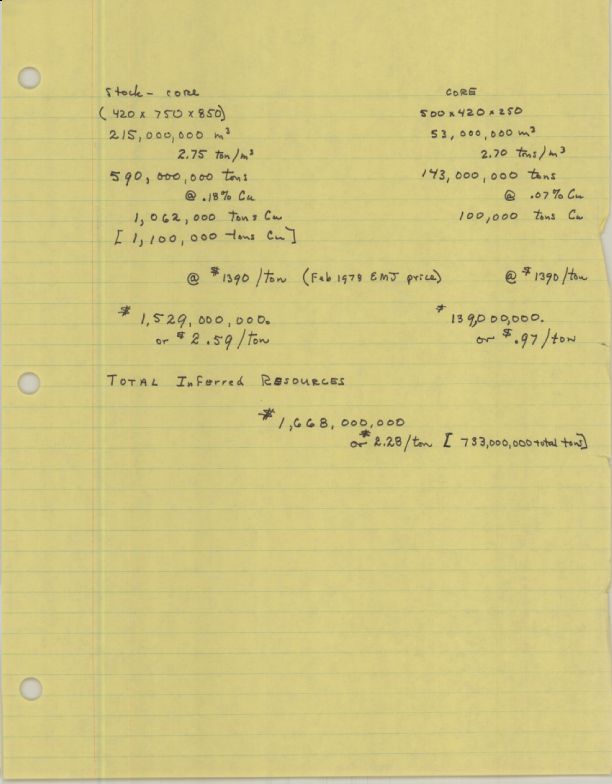 Stock - core
(420 x 750 x 850)
215,000,000 m³
2.75 ton/m³
590,000,000 tons
@ .18% Cu
1,062,000 tons Cu
[1,100,000 tons Cu]
@ $1390/ton (Feb 1978 EMJ price)
$1,529,000,000.
or $2.59/ton
CORE
500 x 420 x 250
53,000,000 m³
2.70 tons/m³
143,000,000 tons
@ .07% Cu
100,000 tons Cu
@ $1390/ton
$139,000,000.
or $.97/ton
TOTAL Inferred RESOURCES
$1,668,000,000
or $2.28/ton [733,000,000 total tons]